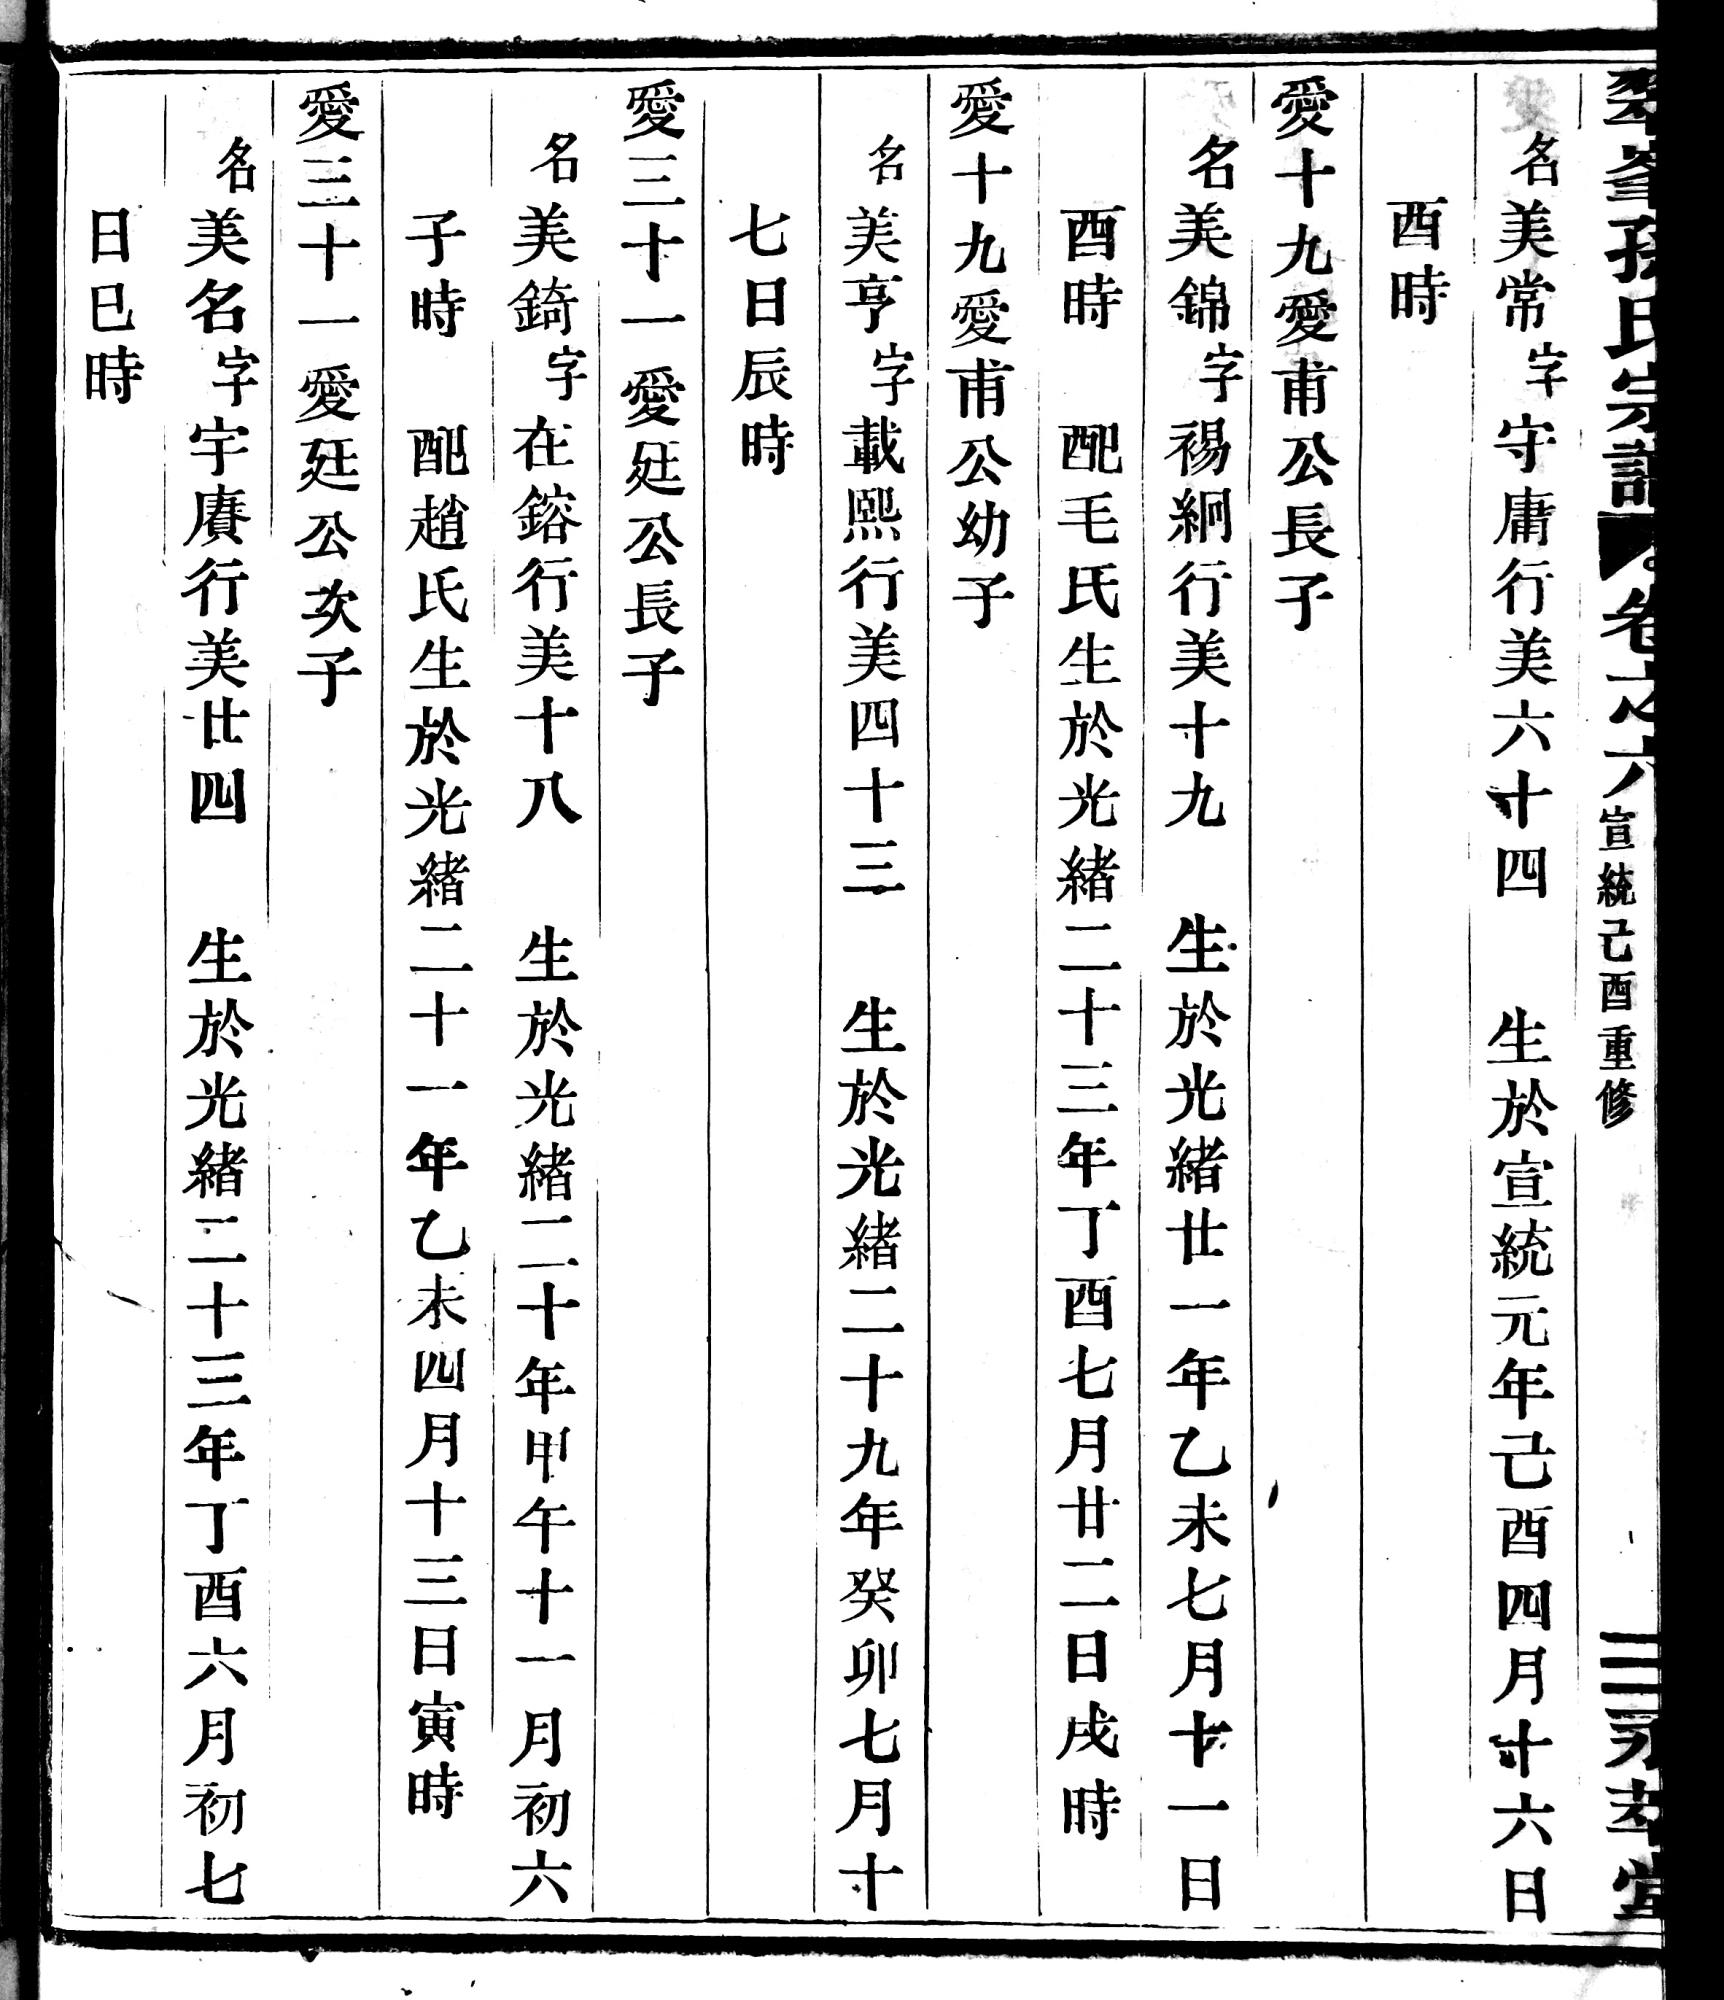 峯孫氏宗譜 卷之六 宣統己酉重修 堂
名美常字守庸行美六十四 生於宣統元年己酉四月十六日
酉時
愛十九愛甫公長子
名美錦字裼絅行美十九 生於光緒廿一年乙未七月十一日
酉時 配毛氏生於光緒二十三年丁酉七月廿二日戌時
愛十九愛甫公幼子
名美亨字載熙行美四十三 生於光緒二十九年癸卯七月十
七日辰時
愛三十一愛廷公長子
名美錡字在鎔行美十八 生於光緒二十年甲午十一月初六
子時 配趙氏生於光緒二十一年乙未四月十三日寅時
愛三十一愛廷公次子
名美名字宇賡行美廿四 生於光緒二十三年丁酉六月初七
日巳時